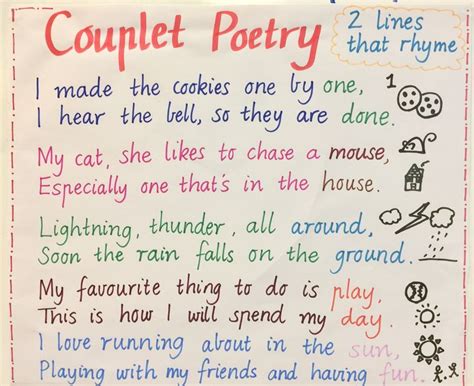 Couplet Poetry
2 lines
that rhyme
I made the cookies one by one,
I hear the bell, so they are done.
1
My cat, she likes to chase a mouse,
Especially one that's in the house.
Lightning, thunder, all around,
Soon the rain falls on the ground.
My favourite thing to do is play,
This is how I will spend my day.
I love running about in the sun,
Playing with my friends and having fun.